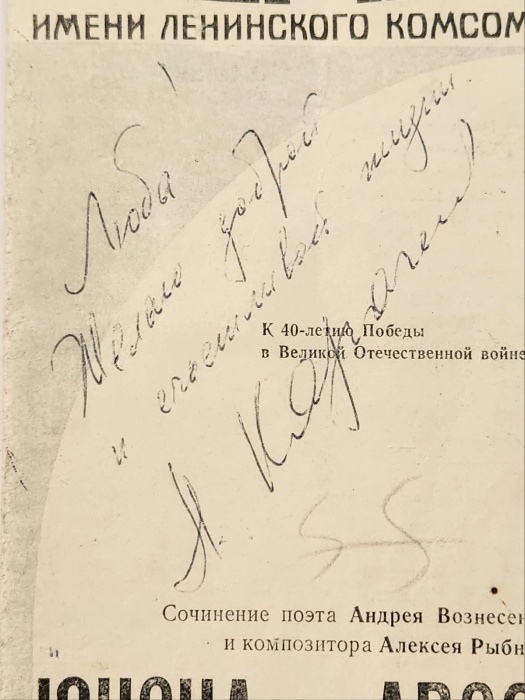 ИМЕНИ ЛЕНИНСКОГО КОМСОМ
Люба!
Желаю доброй
и счастливой жизни.
Н. Караченцов
К 40-летию Победы
в Великой Отечественной войне
Сочинение поэта Андрея Вознесен
и композитора Алексея Рыбн
ЮНОНА АВОС